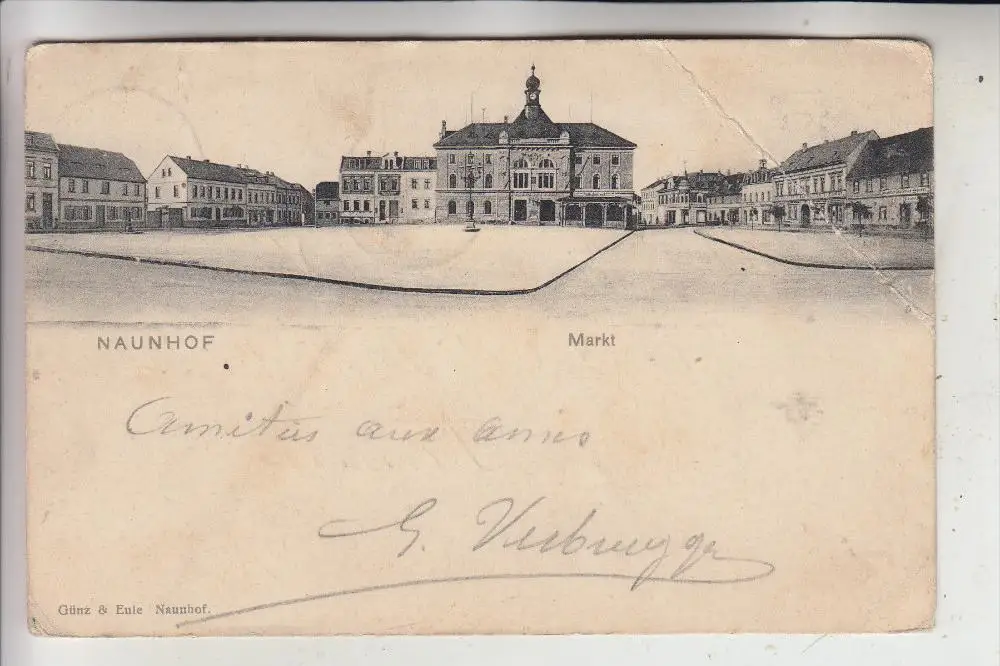 NAUNHOF
Markt
Amitus aux amis
G. Verbrugge
Günz & Eule Naunhof.